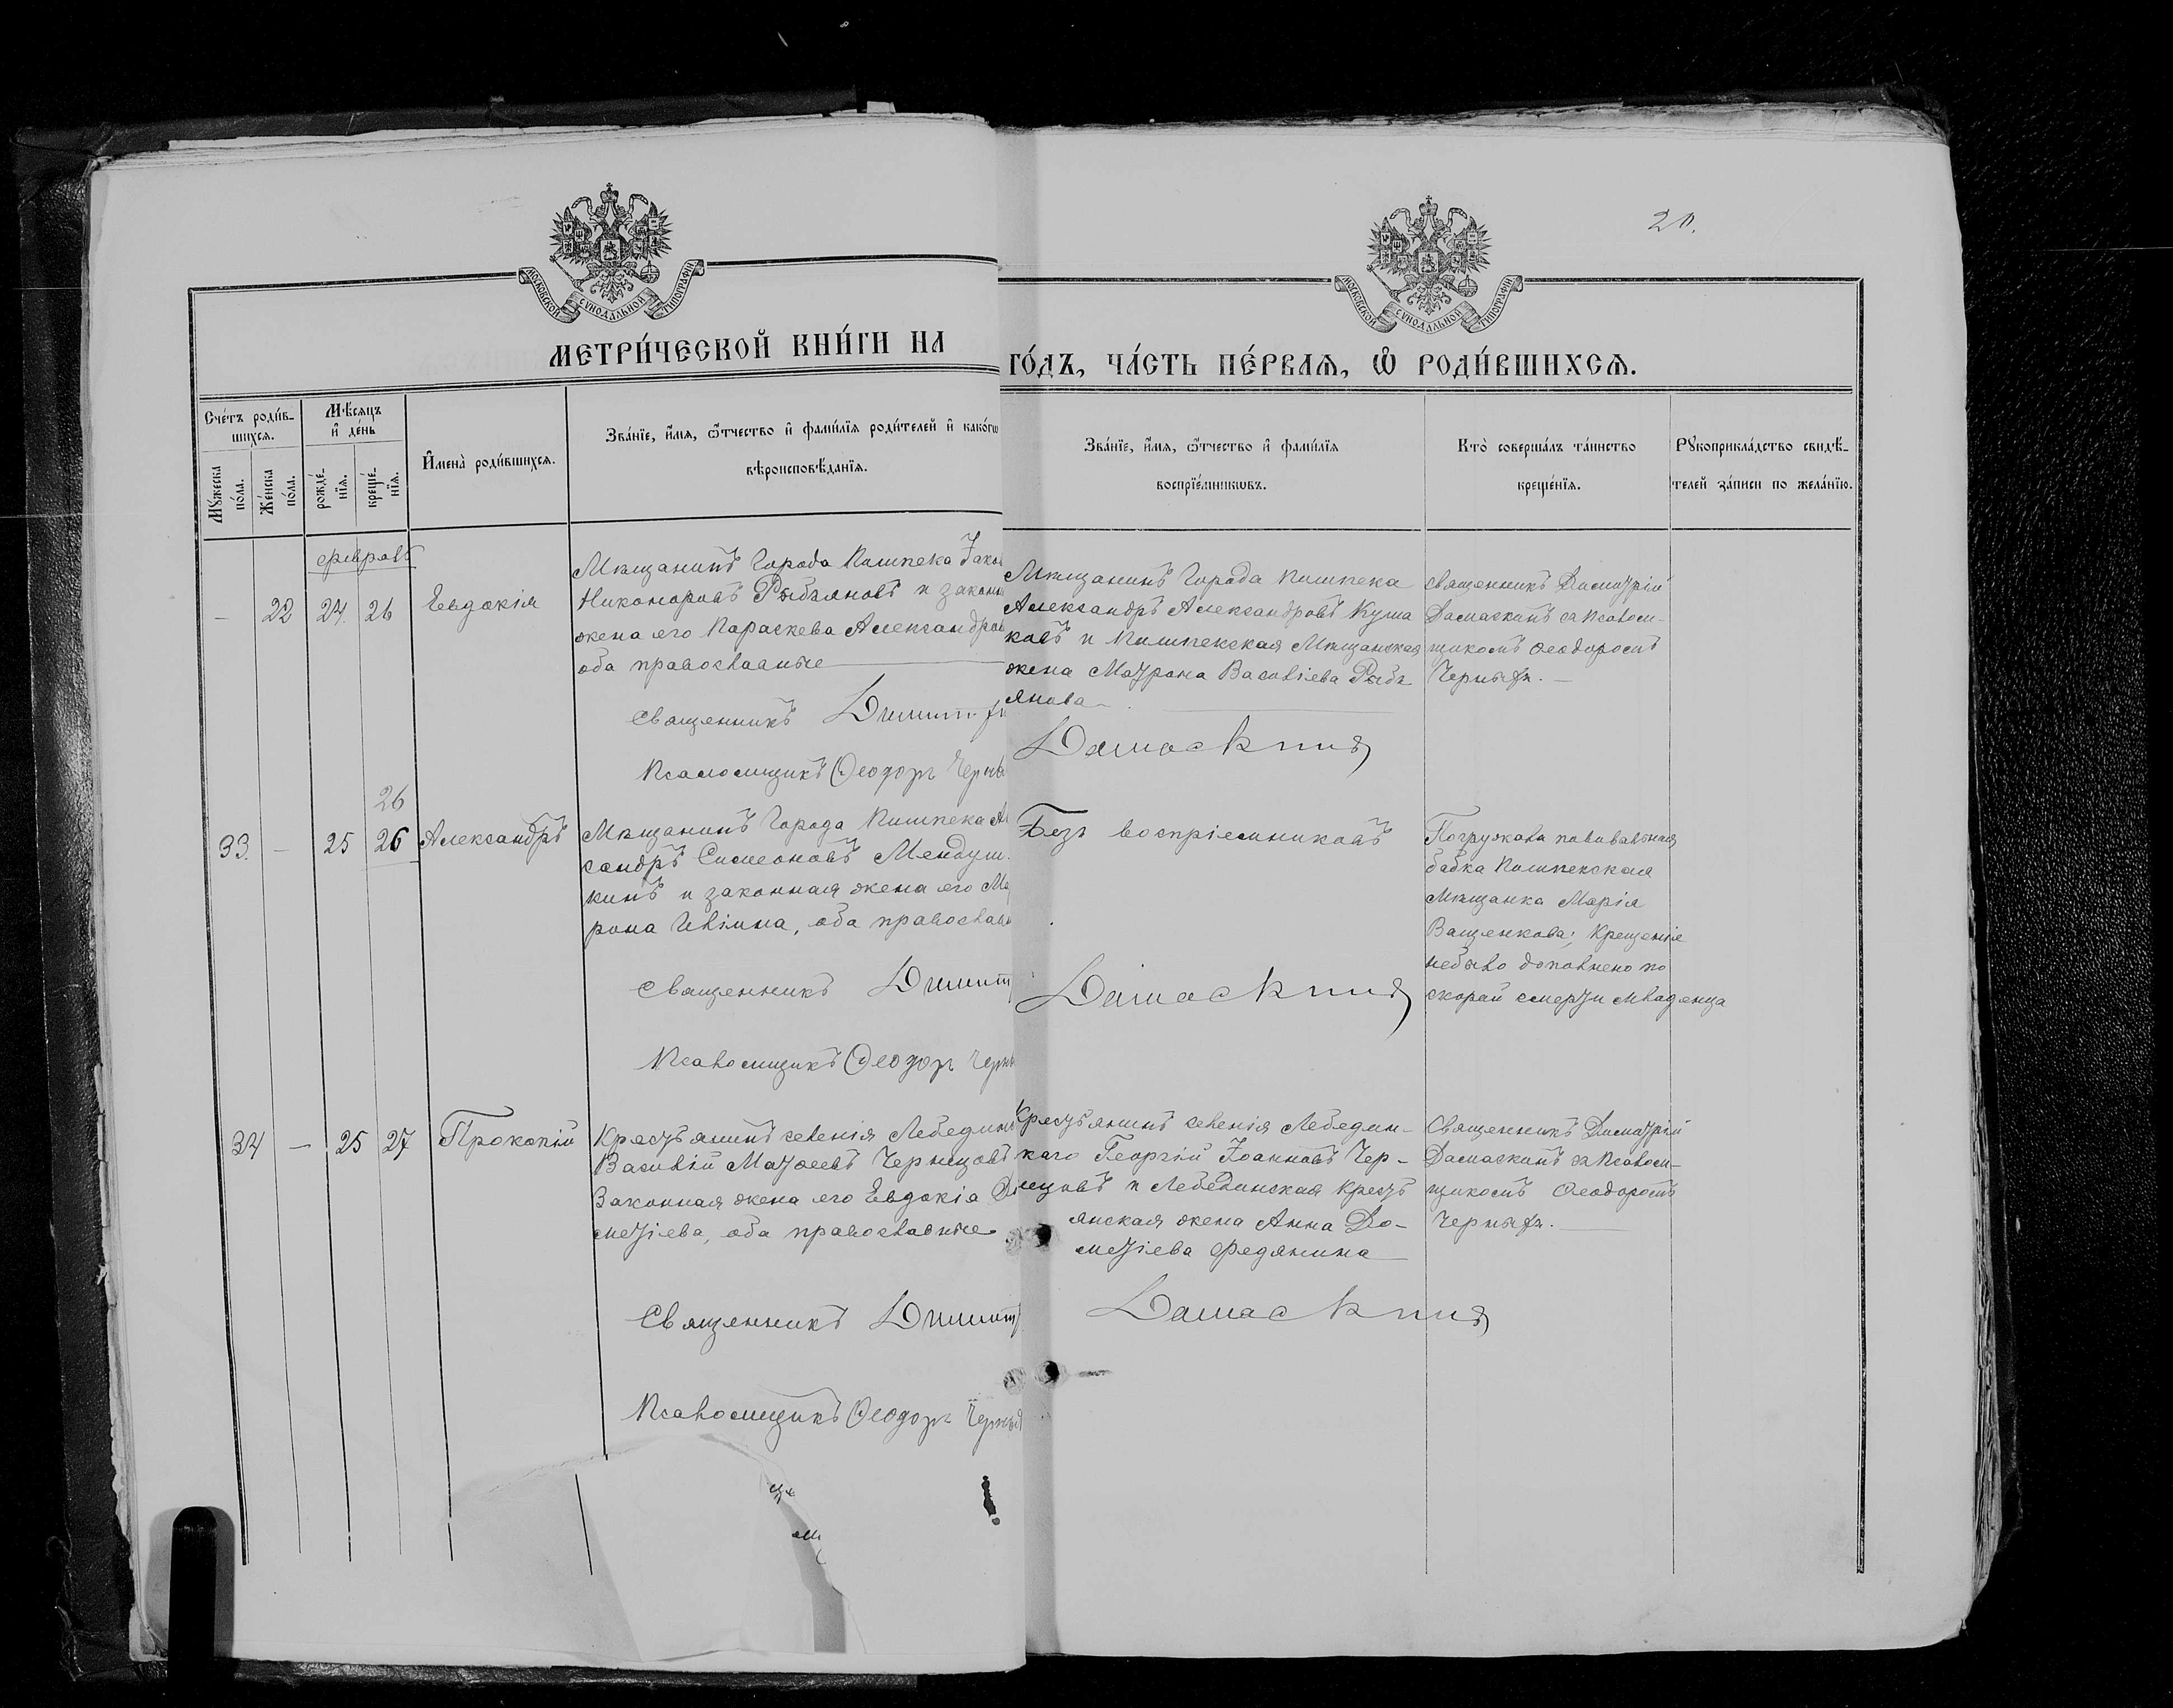 20.
МОСКОВСКОЙ СѴНОДАЛЬНОЙ ТИПОГРАФІИ
МОСКОВСКОЙ СѴНОДАЛЬНОЙ ТИПОГРАФІИ
МЕТРИ́ЧЕСКОЙ КНИ́ГИ НА
ГО́ДЪ, ЧА́СТЬ ПЕ́РВАЯ, Ѡ РОДИ́ВШИХСЯ.
Сче́тъ роди́в-
шихся.
Мꙋ́жеска по́ла.
Же́нска по́ла.
Мѣ́сяцъ и де́нь
рожде́-нїя.
креще́-нїя.
Имена̀ роди́вшихся.
Зва́нїе, и́мя, ѻ́тчество и фами́лїя роди́телей и како́гѡ
вѣроисповѣ́данїя.
Зва́нїе, и́мя, ѻ́тчество и фами́лїя
воспрїе́мникѡвъ.
Кто̀ соверша́лъ та́инство
креще́нїя.
Рꙋкоприкла́дство свидѣ́-
телей за́писи по жела́нїю.
февраль
— 22 24 26 Евдокія
Мѣщанинъ города Пишпека Іако
Никоноровъ Рыбьяновъ и законн
жена его Параскева Александров
оба православные
Священникъ Димитрі
Псаломщикъ Ѳеодоръ Черны
Мѣщанинъ города Пишпека
Александръ Александровъ Куша
ковъ и Пишпекская Мѣщанская
жена Матрона Василіева Рыбь
янова
Дамаскинъ
Священникъ Димитрій
Дамаскинъ съ псалом-
щикомъ Ѳеодоромъ
Чернымъ. —
26
33. — 25 26 Александръ
Мѣщанинъ города Пишпека Ал
сандръ Симеоновъ Мендуш
кинъ и законная жена его Ма
рона Ильина, оба православн
Священникъ Димит
Псаломщикъ Ѳеодоръ Черн
Безъ воспріемниковъ
Дамаскинъ
Погружала повивальная
бабка Пишпекская
Мѣщанка Марія
Ващенкова; Крещеніе
небыло дополнено по
скорой смерти младенца
34 — 25 27 Прокопій
Крестьянинъ селенія Лебединс
Василій Матѳеевъ Чернцовъ
Законная жена его Евдокія До
метіева, оба православные
Священникъ Димит
Псаломщикъ Ѳеодоръ Черный
Крестьянинъ селенія Лебедин-
каго Георгій Іоанновъ Чер-
нцовъ и Лебединская крест
янская жена Анна До-
метіева Федянина
Дамаскинъ
Священникъ Димитрій
Дамаскинъ съ псалом-
щикомъ Ѳеодоромъ
Чернымъ. —